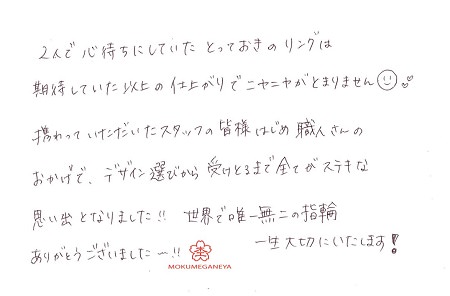 2人で心待ちにしていた とっておきの リングは
期待していた以上の仕上がりでニヤニヤがとまりません
携わっていただいたスタッフの皆様はじめ 職人さんの
おかげで、デザイン選びから受けとるまで全てがステキな
思い出となりました!! 世界で唯一無二の指輪
ありがとうございましたー!! 一生大切にいたします!
MOKUMEGANEYA